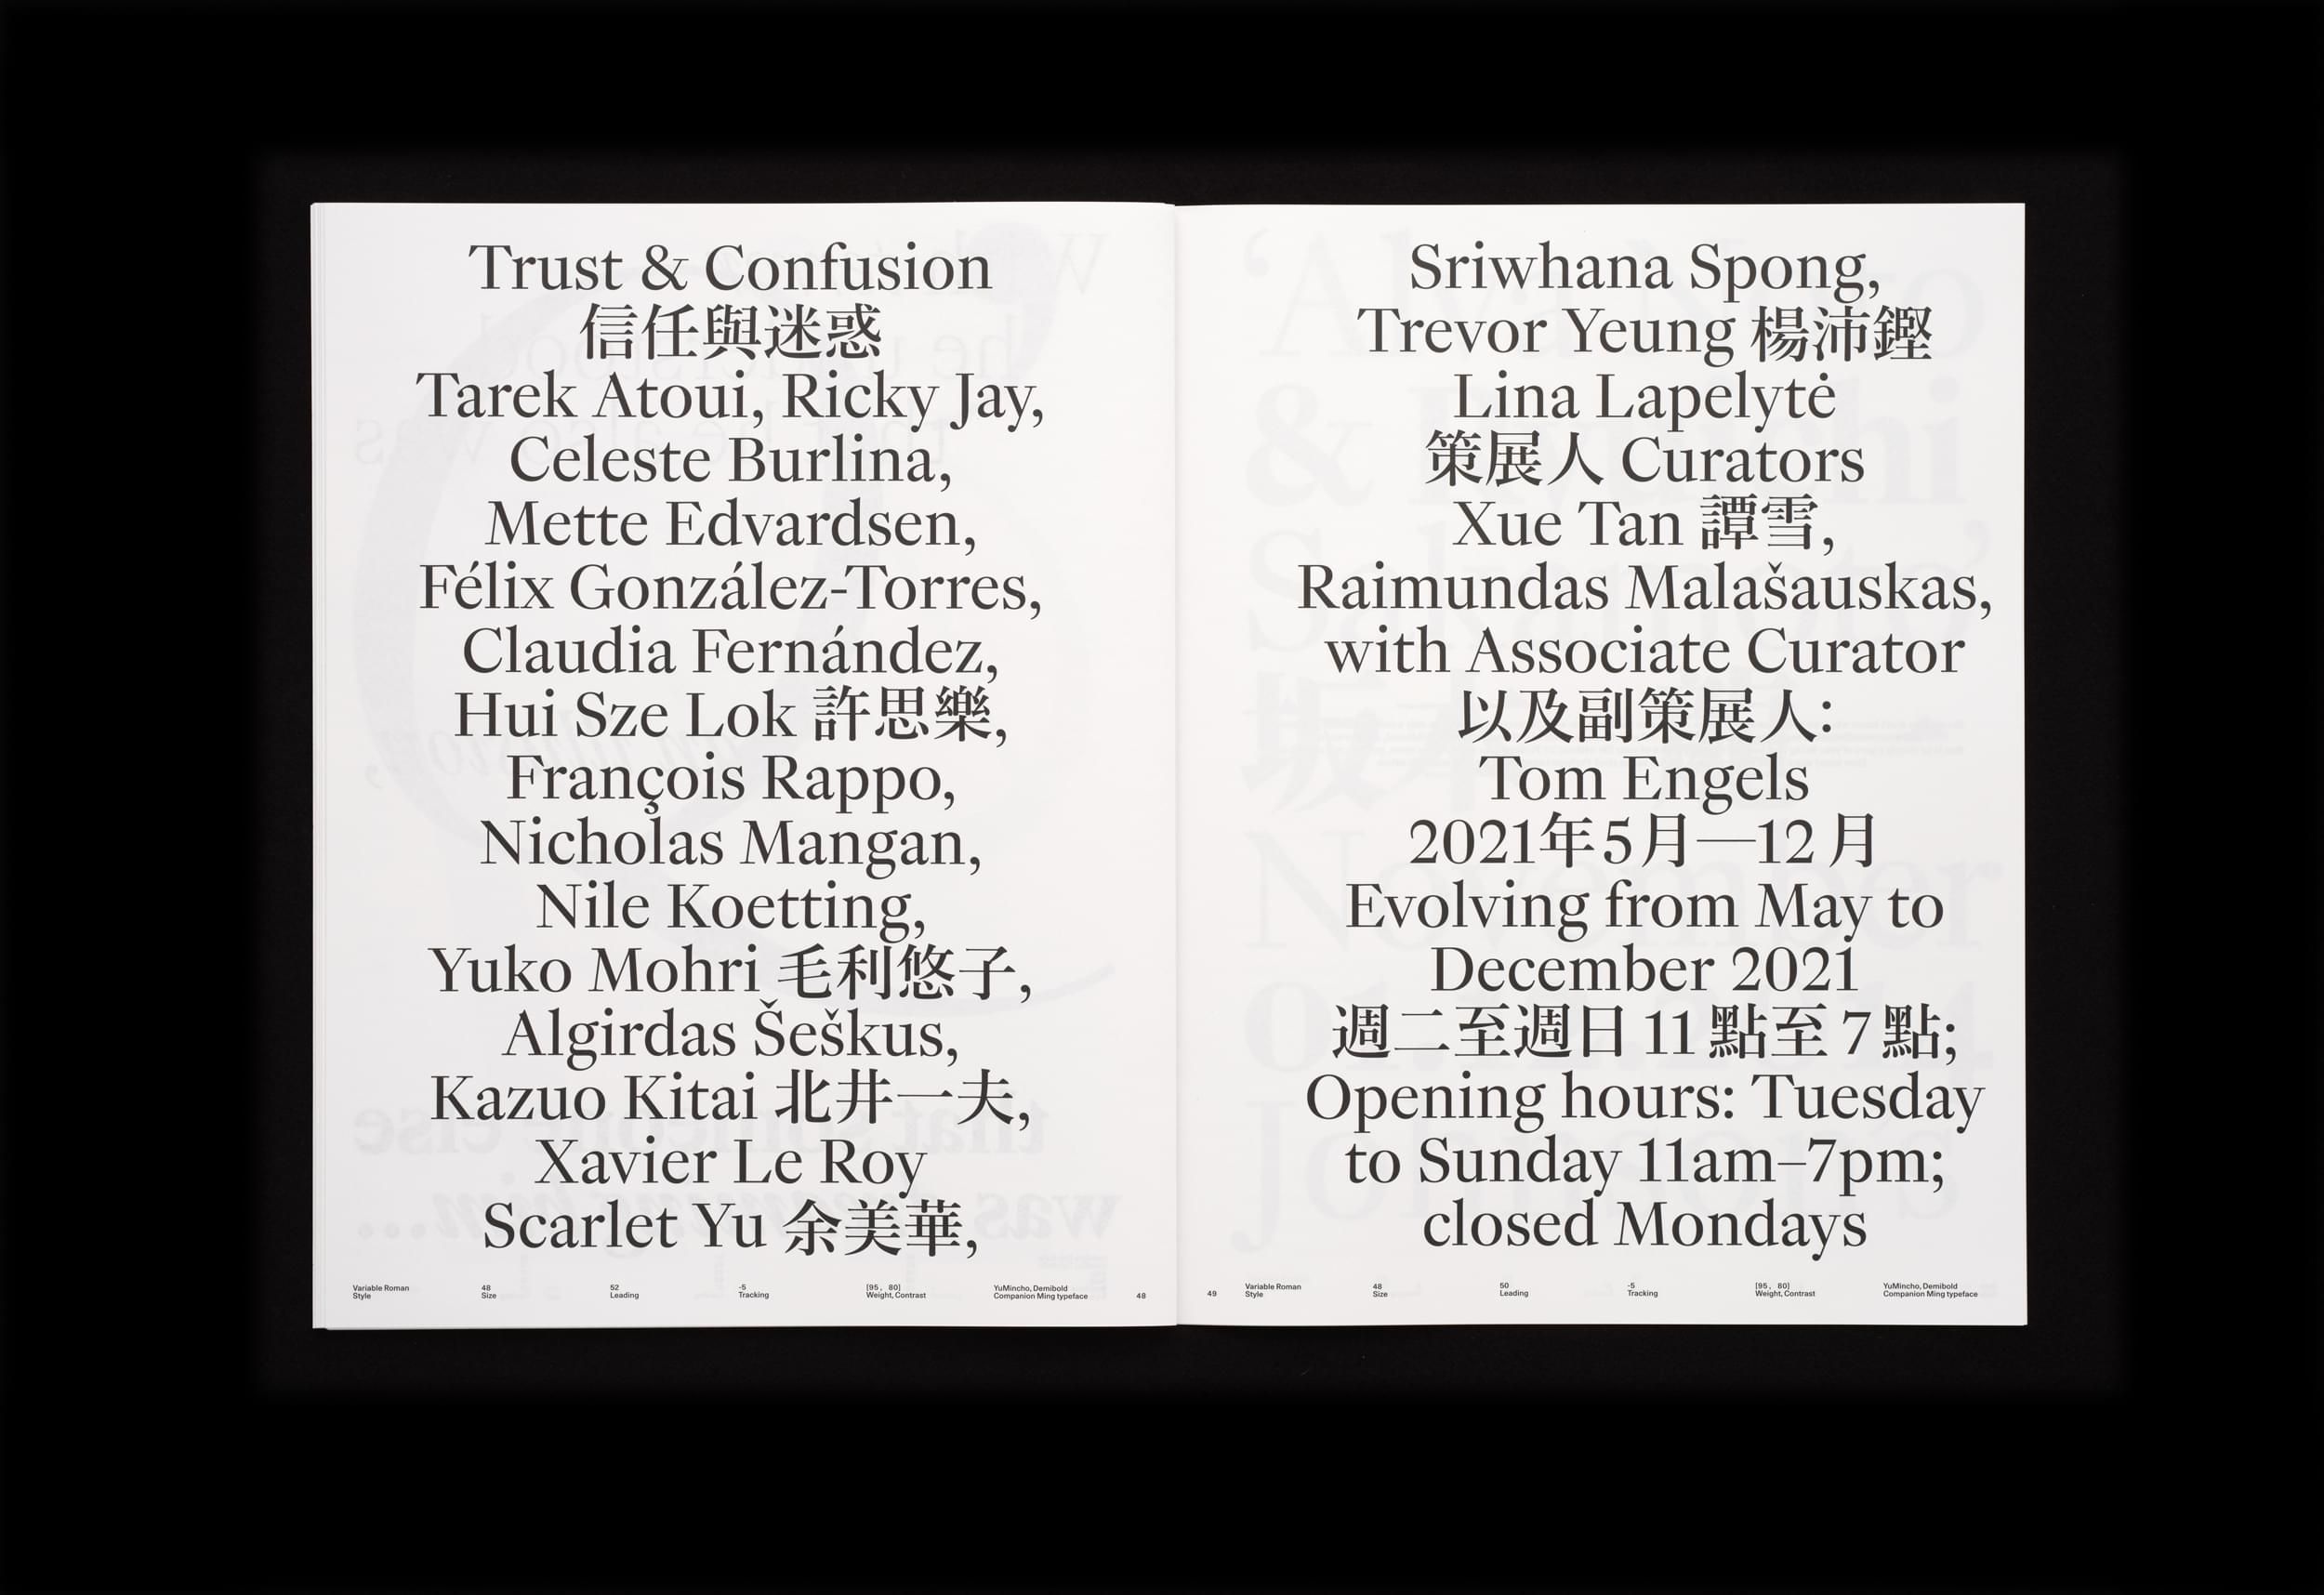 Trust & Confusion
信任與迷惑
Tarek Atoui, Ricky Jay,
Celeste Burlina,
Mette Edvardsen,
Félix González-Torres,
Claudia Fernández,
Hui Sze Lok 許思樂,
François Rappo,
Nicholas Mangan,
Nile Koetting,
Yuko Mohri 毛利悠子,
Algirdas Šeškus,
Kazuo Kitai 北井一夫,
Xavier Le Roy
Scarlet Yu 余美華,
Variable Roman
Style
48
Size
52
Leading
-5
Tracking
[95, 80]
Weight, Contrast
YuMincho, Demibold
Companion Ming typeface
48
Sriwhana Spong,
Trevor Yeung 楊沛鏗
Lina Lapelytė
策展人 Curators
Xue Tan 譚雪,
Raimundas Malašauskas,
with Associate Curator
以及副策展人:
Tom Engels
2021年5月—12月
Evolving from May to
December 2021
週二至週日 11 點至 7 點;
Opening hours: Tuesday
to Sunday 11am–7pm;
closed Mondays
49
Variable Roman
Style
48
Size
50
Leading
-5
Tracking
[95, 80]
Weight, Contrast
YuMincho, Demibold
Companion Ming typeface